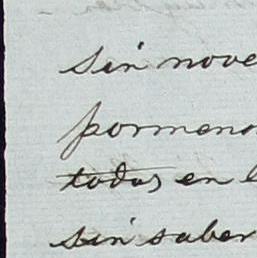 sin nove
pormeno
todos en l
sin saber